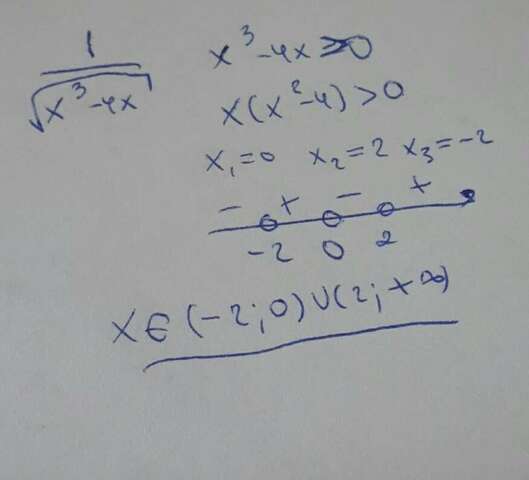 1
√x³-4x
x³-4x>0
x(x²-4)>0
x₁=0 x₂=2 x₃=-2
- + - +
-2 0 2
x∈(-2;0)∪(2;+∞)